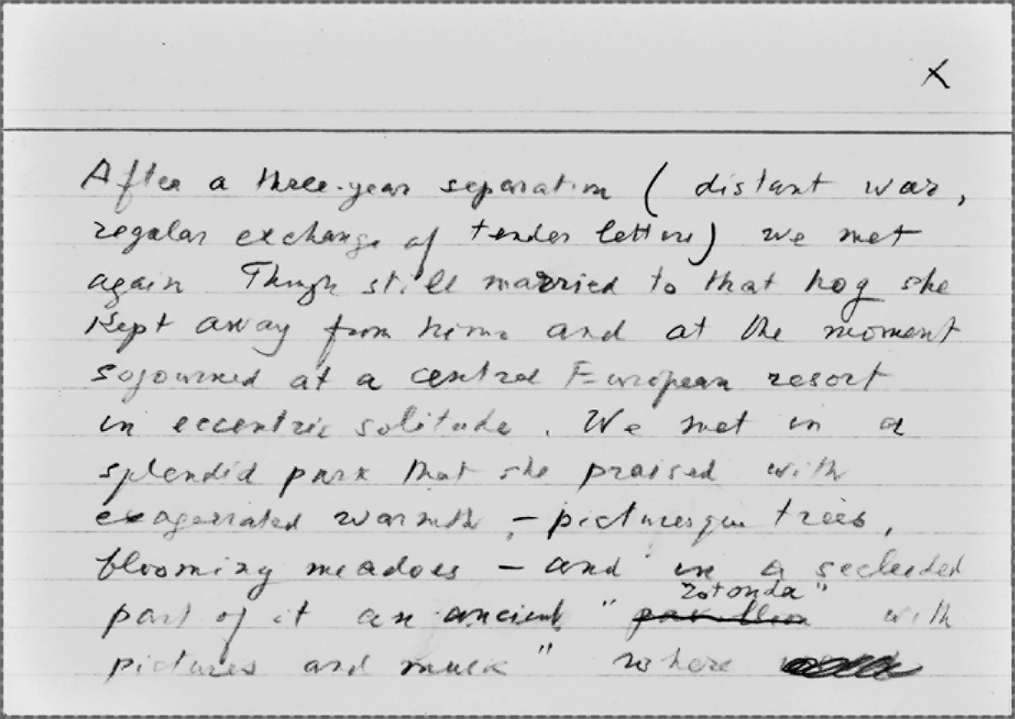 X
After a three-year separation ( distant war,
regular exchange of tender letters) we met
again Though still married to that hog she
kept away from him and at the moment
sojourned at a central European resort
in eccentric solitude. We met in a
splendid park that she praised with
exagerrated warmth – picturesque trees,
blooming meadows – and in a secluded
rotonda"
part of it an ancient " pavilion with
pictures and music" where